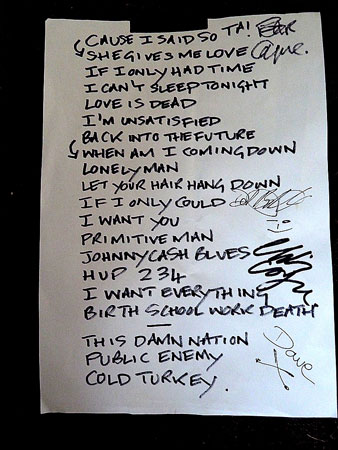 CAUSE I SAID SO TA!
SHE GIVES ME LOVE
IF I ONLY HAD TIME
I CAN'T SLEEP TONIGHT
LOVE IS DEAD
I'M UNSATISFIED
BACK INTO THE FUTURE
WHEN AM I COMING DOWN
LONELY MAN
LET YOUR HAIR HANG DOWN
IF I ONLY COULD
I WANT YOU
PRIMITIVE MAN
JOHNNY CASH BLUES
HUP 234
I WANT EVERYTHING
BIRTH SCHOOL WORK DEATH
THIS DAMN NATION
PUBLIC ENEMY
COLD TURKEY.
Dave